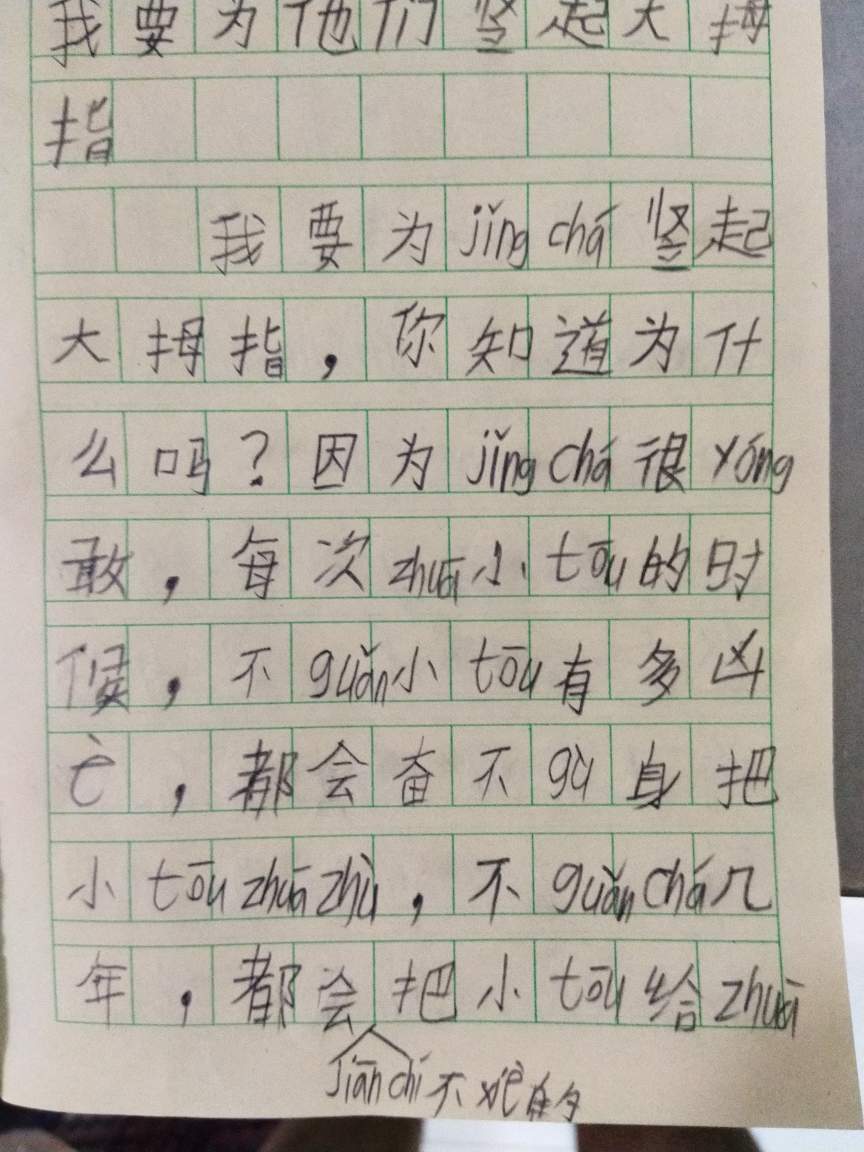 我要为他们竖起大拇
指
我要为jǐngchá竖起
大拇指，你知道为什
么吗？因为jǐngchá很yóng
敢，每次zhuā小tōu的时
候，不guǎn小tōu有多凶
è，都会奋不gù身把
小tōuzhuāzhù，不guǎnchá几
年，都会把小tōu给zhuā
jiānchí不xiè